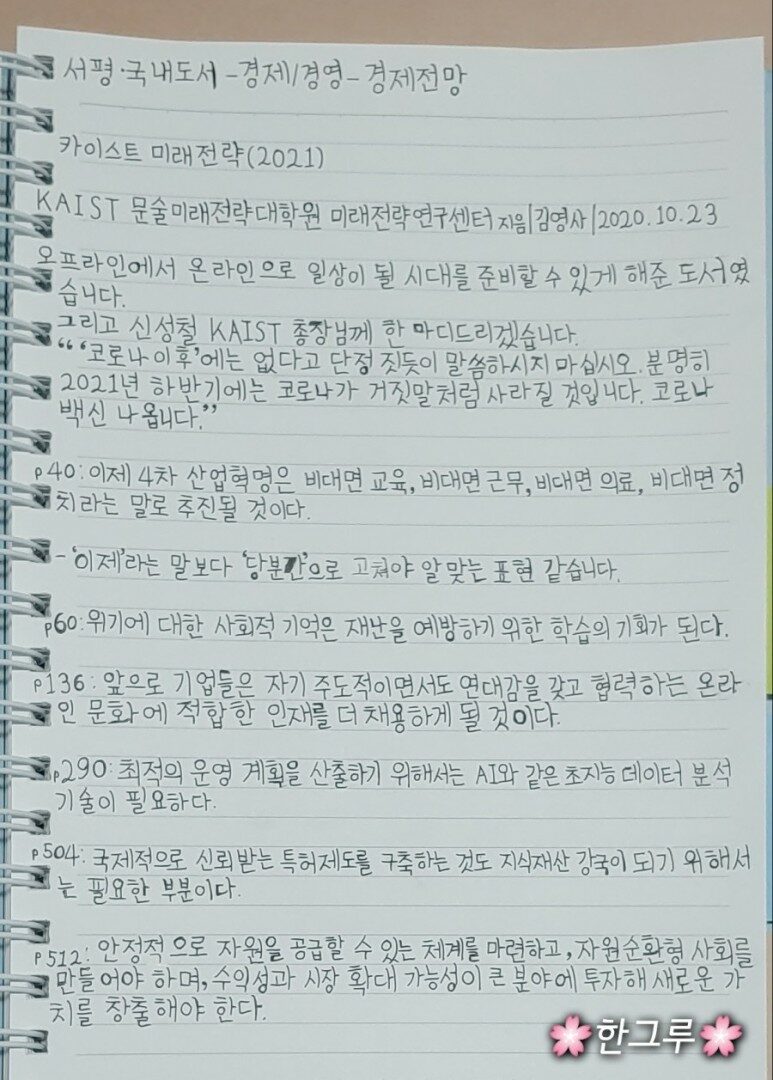 서평·국내도서 -경제/경영- 경제전망
카이스트 미래전략(2021)
KAIST 문술미래전략대학원 미래전략연구센터 지음|김영사|2020.10.23
오프라인에서 온라인으로 일상이 될 시대를 준비할 수 있게 해준 도서였
습니다.
그리고 신성철 KAIST 총장님께 한 마디드리겠습니다.
“‘코로나 이후’에는 없다고 단정 짓듯이 말씀하시지 마십시오. 분명히
2021년 하반기에는 코로나가 거짓말처럼 사라질 것입니다. 코로나
백신 나옵니다.”
p40: 이제 4차 산업혁명은 비대면 교육, 비대면 근무, 비대면 의료, 비대면 정
치라는 말로 추진될 것이다.
- ‘이제’라는 말보다 ‘당분간’으로 고쳐야 알맞는 표현 같습니다.
p60: 위기에 대한 사회적 기억은 재난을 예방하기 위한 학습의 기회가 된다.
p136: 앞으로 기업들은 자기 주도적이면서도 연대감을 갖고 협력하는 온라
인 문화에 적합한 인재를 더 채용하게 될 것이다.
p290: 최적의 운영 계획을 산출하기 위해서는 AI와 같은 초지능 데이터 분석
기술이 필요하다.
p504: 국제적으로 신뢰받는 특허제도를 구축하는 것도 지식재산 강국이 되기 위해서
는 필요한 부분이다.
p512: 안정적으로 자원을 공급할 수 있는 체계를 마련하고, 자원순환형 사회를
만들어야 하며, 수익성과 시장 확대 가능성이 큰 분야에 투자해 새로운 가
치를 창출해야 한다.
🌸한그루🌸